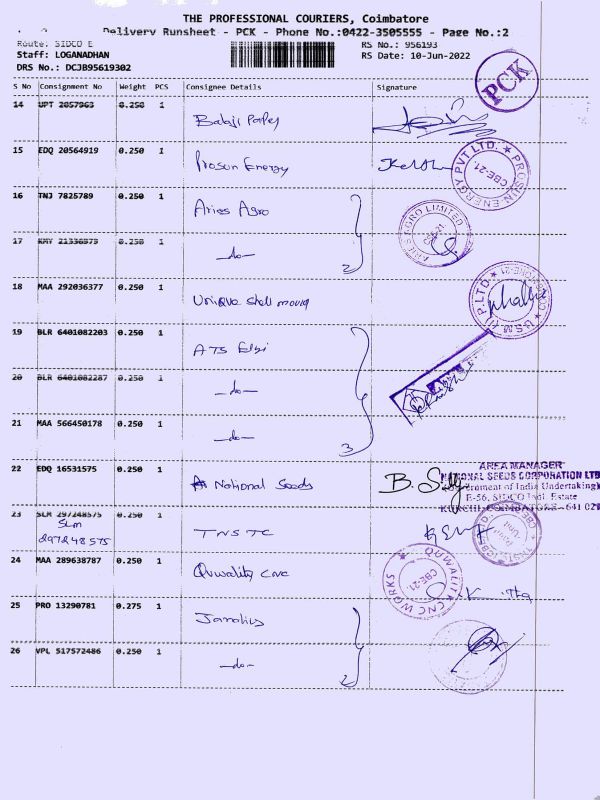 THE PROFESSIONAL COURIERS, Coimbatore
Delivery Runsheet - PCK - Phone No.:0422-3505555 - Page No.:2
Route: SIDCO E
RS No.: 956193
Staff: LOGANADHAN
RS Date: 10-Jun-2022
DRS No.: DCJB95619302
PCK
S No Consignment No Weight PCS Consignee Details Signature
14 UPT 2057963 0.250 1
Balaji
15 EDQ 20564919 0.250 1
Prosun Energy
PROSUN ENERGY PVT LTD. CBE-21
16 TNJ 7825789 0.250 1
Aries Agro
ARIES AGRO LIMITED CBE-21.
17 0.250 1
-do-
2
18 MAA 292036377 0.250 1
Unique Shell mould
U.S.M (I) P.LTD.
19 BLR 6401082203 0.250 1
ATS Elgi
20 BLR 6401082287 0.250 1
-do-
21 MAA 566450178 0.250 1
-do-
3
22 EDQ 16531575 0.250 1
National Seeds
AREA MANAGER
NATIONAL SEEDS CORPORATION LTD
(Government of India Undertaking)
E-56, SIDCO Indl. Estate
KURICHI, COIMBATORE - 641 021
23 SLM 297248575 0.250 1
SLM
297248575
TNSTC
24 MAA 289638787 0.250 1
Quwality CNC
QUWALITY CNC WORKS CBE-21.
25 PRO 13290781 0.275 1
26 VPL 517572486 0.250 1
-do-
2